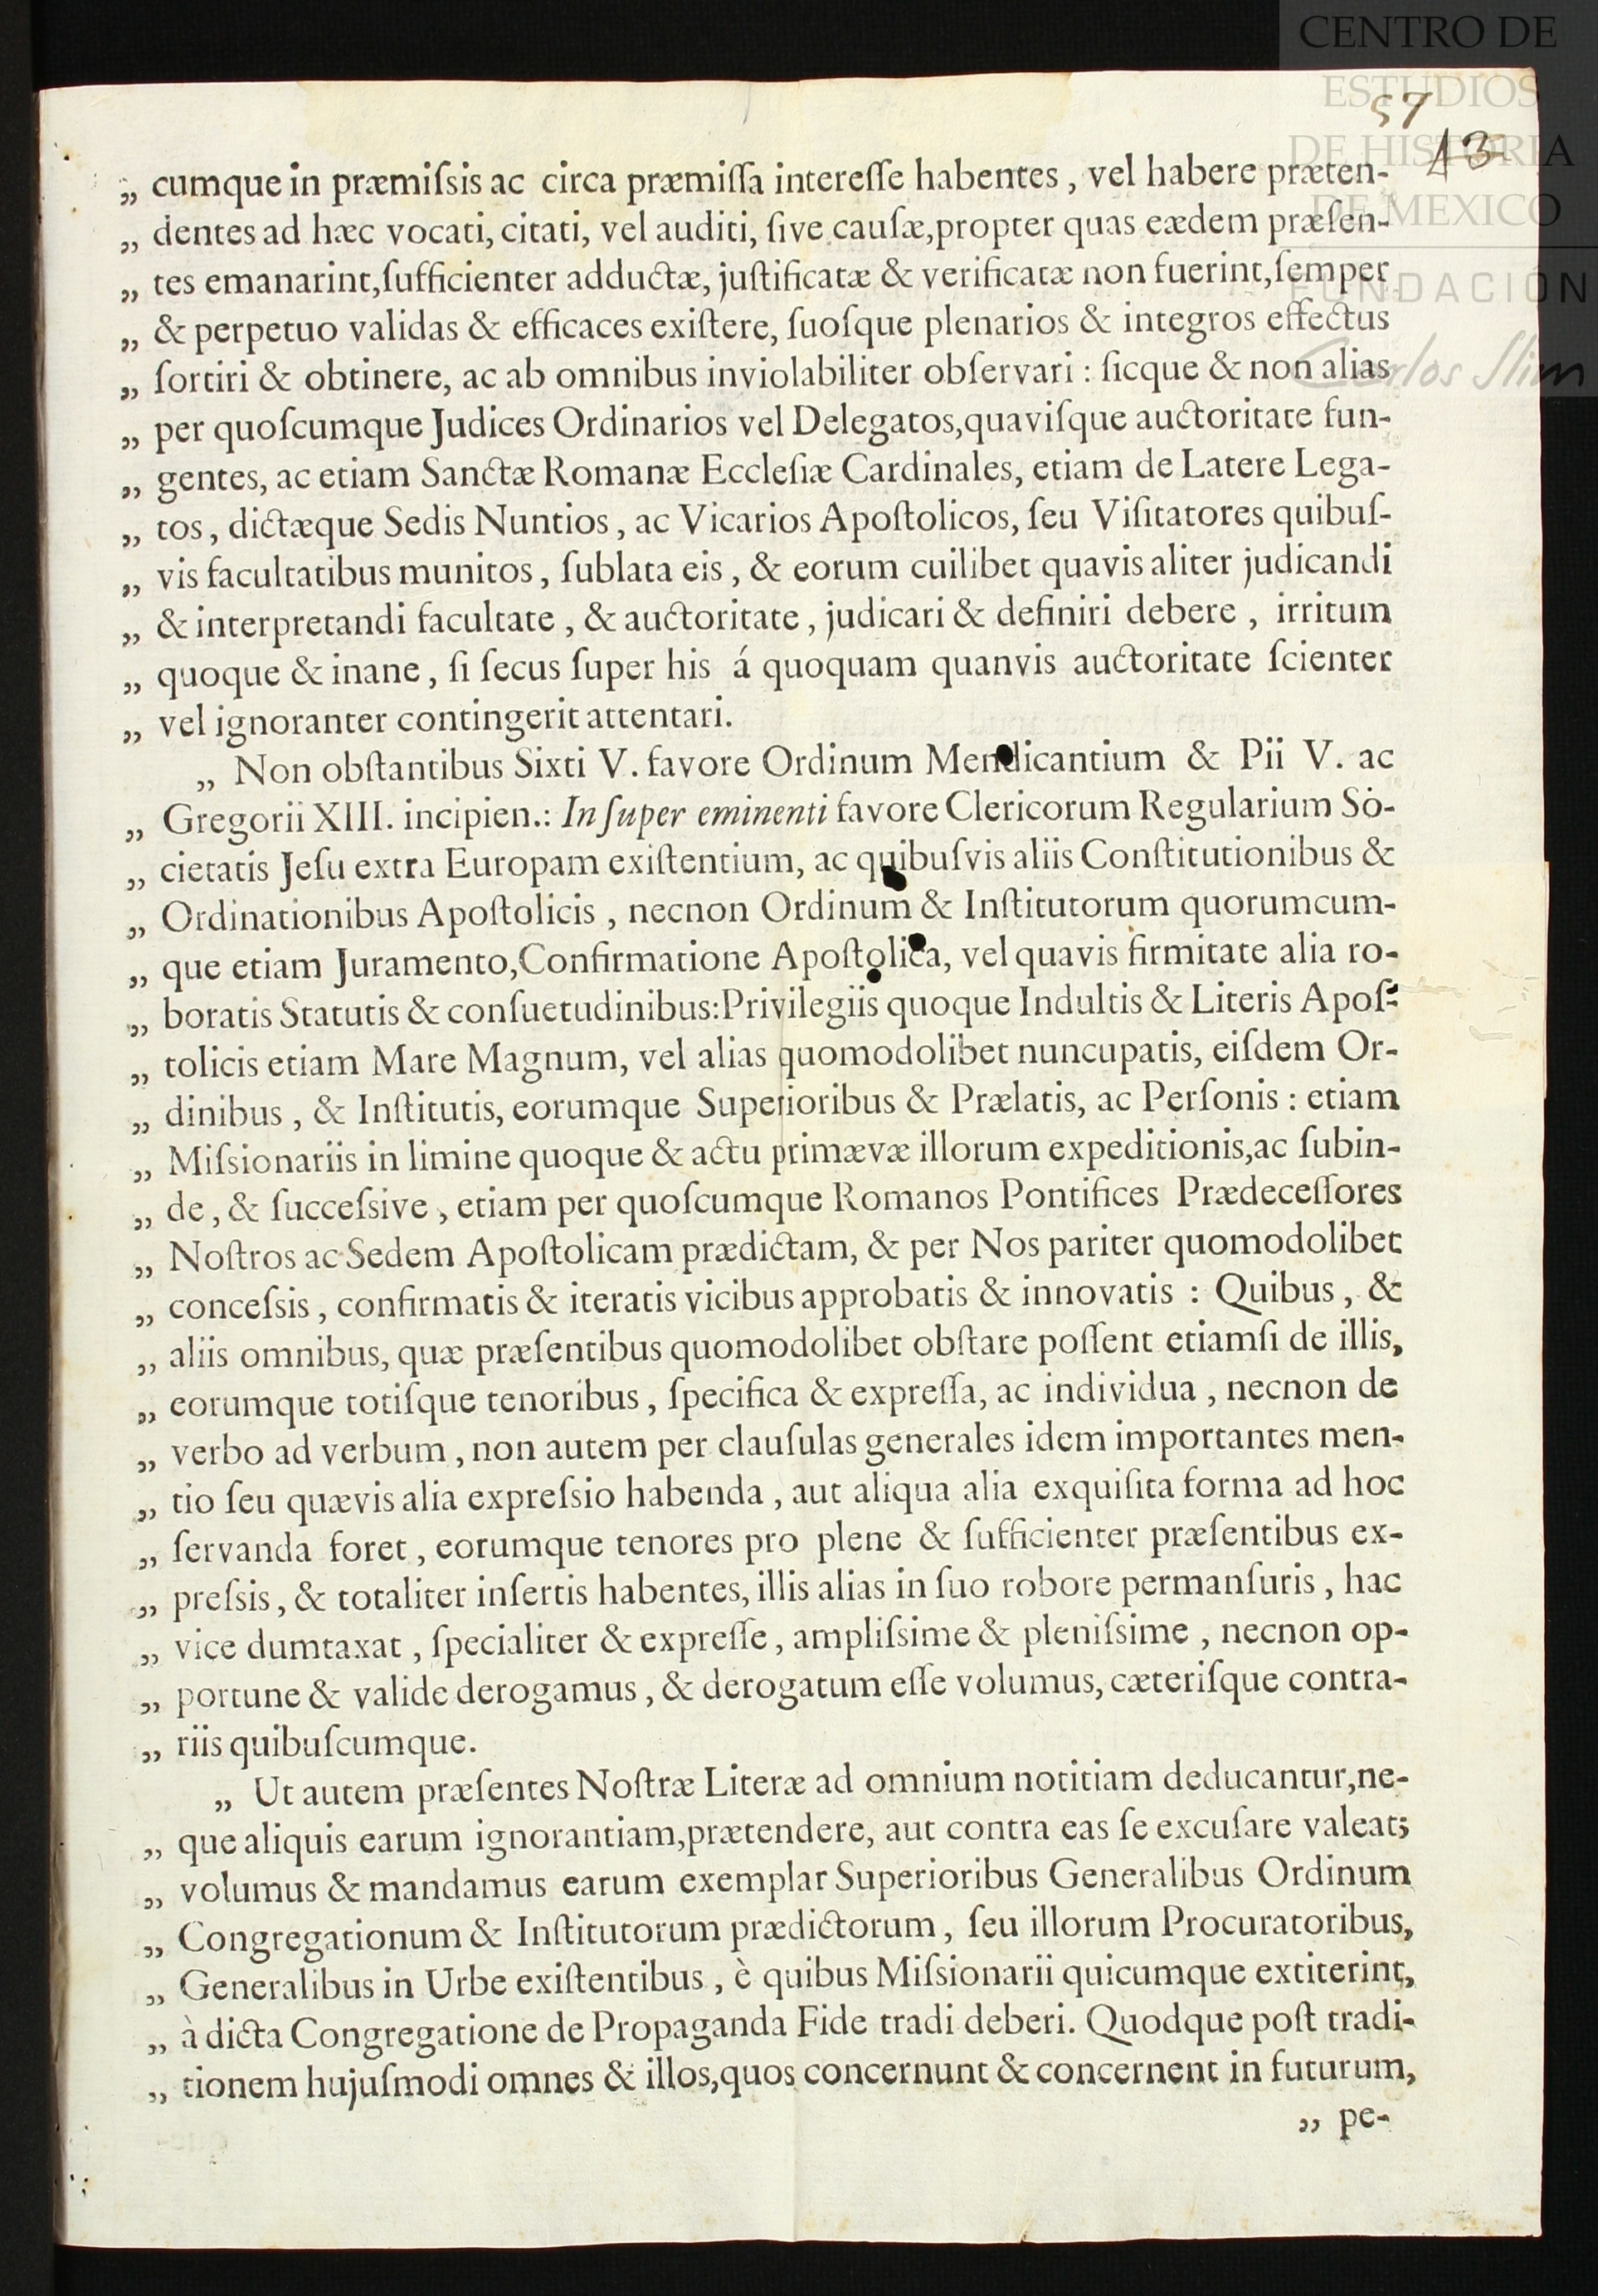 CENTRO DE
ESTUDIOS
DE HISTORIA
DE MEXICO
FUNDACIÓN
Carlos Slim
57
13
„ cumque in præmiſsis ac circa præmiſſa intereſſe habentes , vel habere præten-
„ dentes ad hæc vocati, citati, vel auditi, ſive cauſæ,propter quas eædem præſen-
„ tes emanarint,ſufficienter adductæ, juſtificatæ & verificatæ non fuerint,ſemper
„ & perpetuo validas & efficaces exiſtere, ſuoſque plenarios & integros effectus
„ ſortiri & obtinere, ac ab omnibus inviolabiliter obſervari : ſicque & non alias
„ per quoſcumque Judices Ordinarios vel Delegatos,quaviſque auctoritate fun-
„ gentes, ac etiam Sanctæ Romanæ Eccleſiæ Cardinales, etiam de Latere Lega-
„ tos , dictæque Sedis Nuntios , ac Vicarios Apoſtolicos, ſeu Viſitatores quibuſ-
„ vis facultatibus munitos , ſublata eis , & eorum cuilibet quavis aliter judicandi
„ & interpretandi facultate , & auctoritate , judicari & definiri debere , irritum
„ quoque & inane , ſi ſecus ſuper his á quoquam quanvis auctoritate ſcienter
„ vel ignoranter contingerit attentari.
„ Non obſtantibus Sixti V. favore Ordinum Mendicantium & Pii V. ac
„ Gregorii XIII. incipien.: In ſuper eminenti favore Clericorum Regularium So-
„ cietatis Jeſu extra Europam exiſtentium, ac quibuſvis aliis Conſtitutionibus &
„ Ordinationibus Apoſtolicis , necnon Ordinum & Inſtitutorum quorumcum-
„ que etiam Juramento,Confirmatione Apoſtolica, vel quavis firmitate alia ro-
„ boratis Statutis & conſuetudinibus:Privilegiis quoque Indultis & Literis Apoſ-
„ tolicis etiam Mare Magnum, vel alias quomodolibet nuncupatis, eiſdem Or-
„ dinibus , & Inſtitutis, eorumque Superioribus & Prælatis, ac Perſonis : etiam
„ Miſsionariis in limine quoque & actu primævæ illorum expeditionis,ac ſubin-
„ de , & ſucceſsive , etiam per quoſcumque Romanos Pontifices Prædeceſſores
„ Noſtros ac Sedem Apoſtolicam prædictam, & per Nos pariter quomodolibet
„ conceſsis , confirmatis & iteratis vicibus approbatis & innovatis : Quibus , &
„ aliis omnibus, quæ præſentibus quomodolibet obſtare poſſent etiamſi de illis,
„ eorumque totiſque tenoribus , ſpecifica & expreſſa, ac individua , necnon de
„ verbo ad verbum , non autem per clauſulas generales idem importantes men-
„ tio ſeu quævis alia expreſsio habenda , aut aliqua alia exquiſita forma ad hoc
„ ſervanda foret , eorumque tenores pro plene & ſufficienter præſentibus ex-
„ preſsis , & totaliter inſertis habentes, illis alias in ſuo robore permanſuris , hac
„ vice dumtaxat , ſpecialiter & expreſſe , ampliſsime & pleniſsime , necnon op-
„ portune & valide derogamus , & derogatum eſſe volumus, cæteriſque contra-
„ riis quibuſcumque.
„ Ut autem præſentes Noſtræ Literæ ad omnium notitiam deducantur,ne-
„ que aliquis earum ignorantiam,prætendere, aut contra eas ſe excuſare valeat;
„ volumus & mandamus earum exemplar Superioribus Generalibus Ordinum
„ Congregationum & Inſtitutorum prædictorum , ſeu illorum Procuratoribus,
„ Generalibus in Urbe exiſtentibus , è quibus Miſsionarii quicumque extiterint,
„ à dicta Congregatione de Propaganda Fide tradi deberi. Quodque poſt tradi-
„ tionem hujuſmodi omnes & illos,quos concernunt & concernent in futurum,
„ pe-